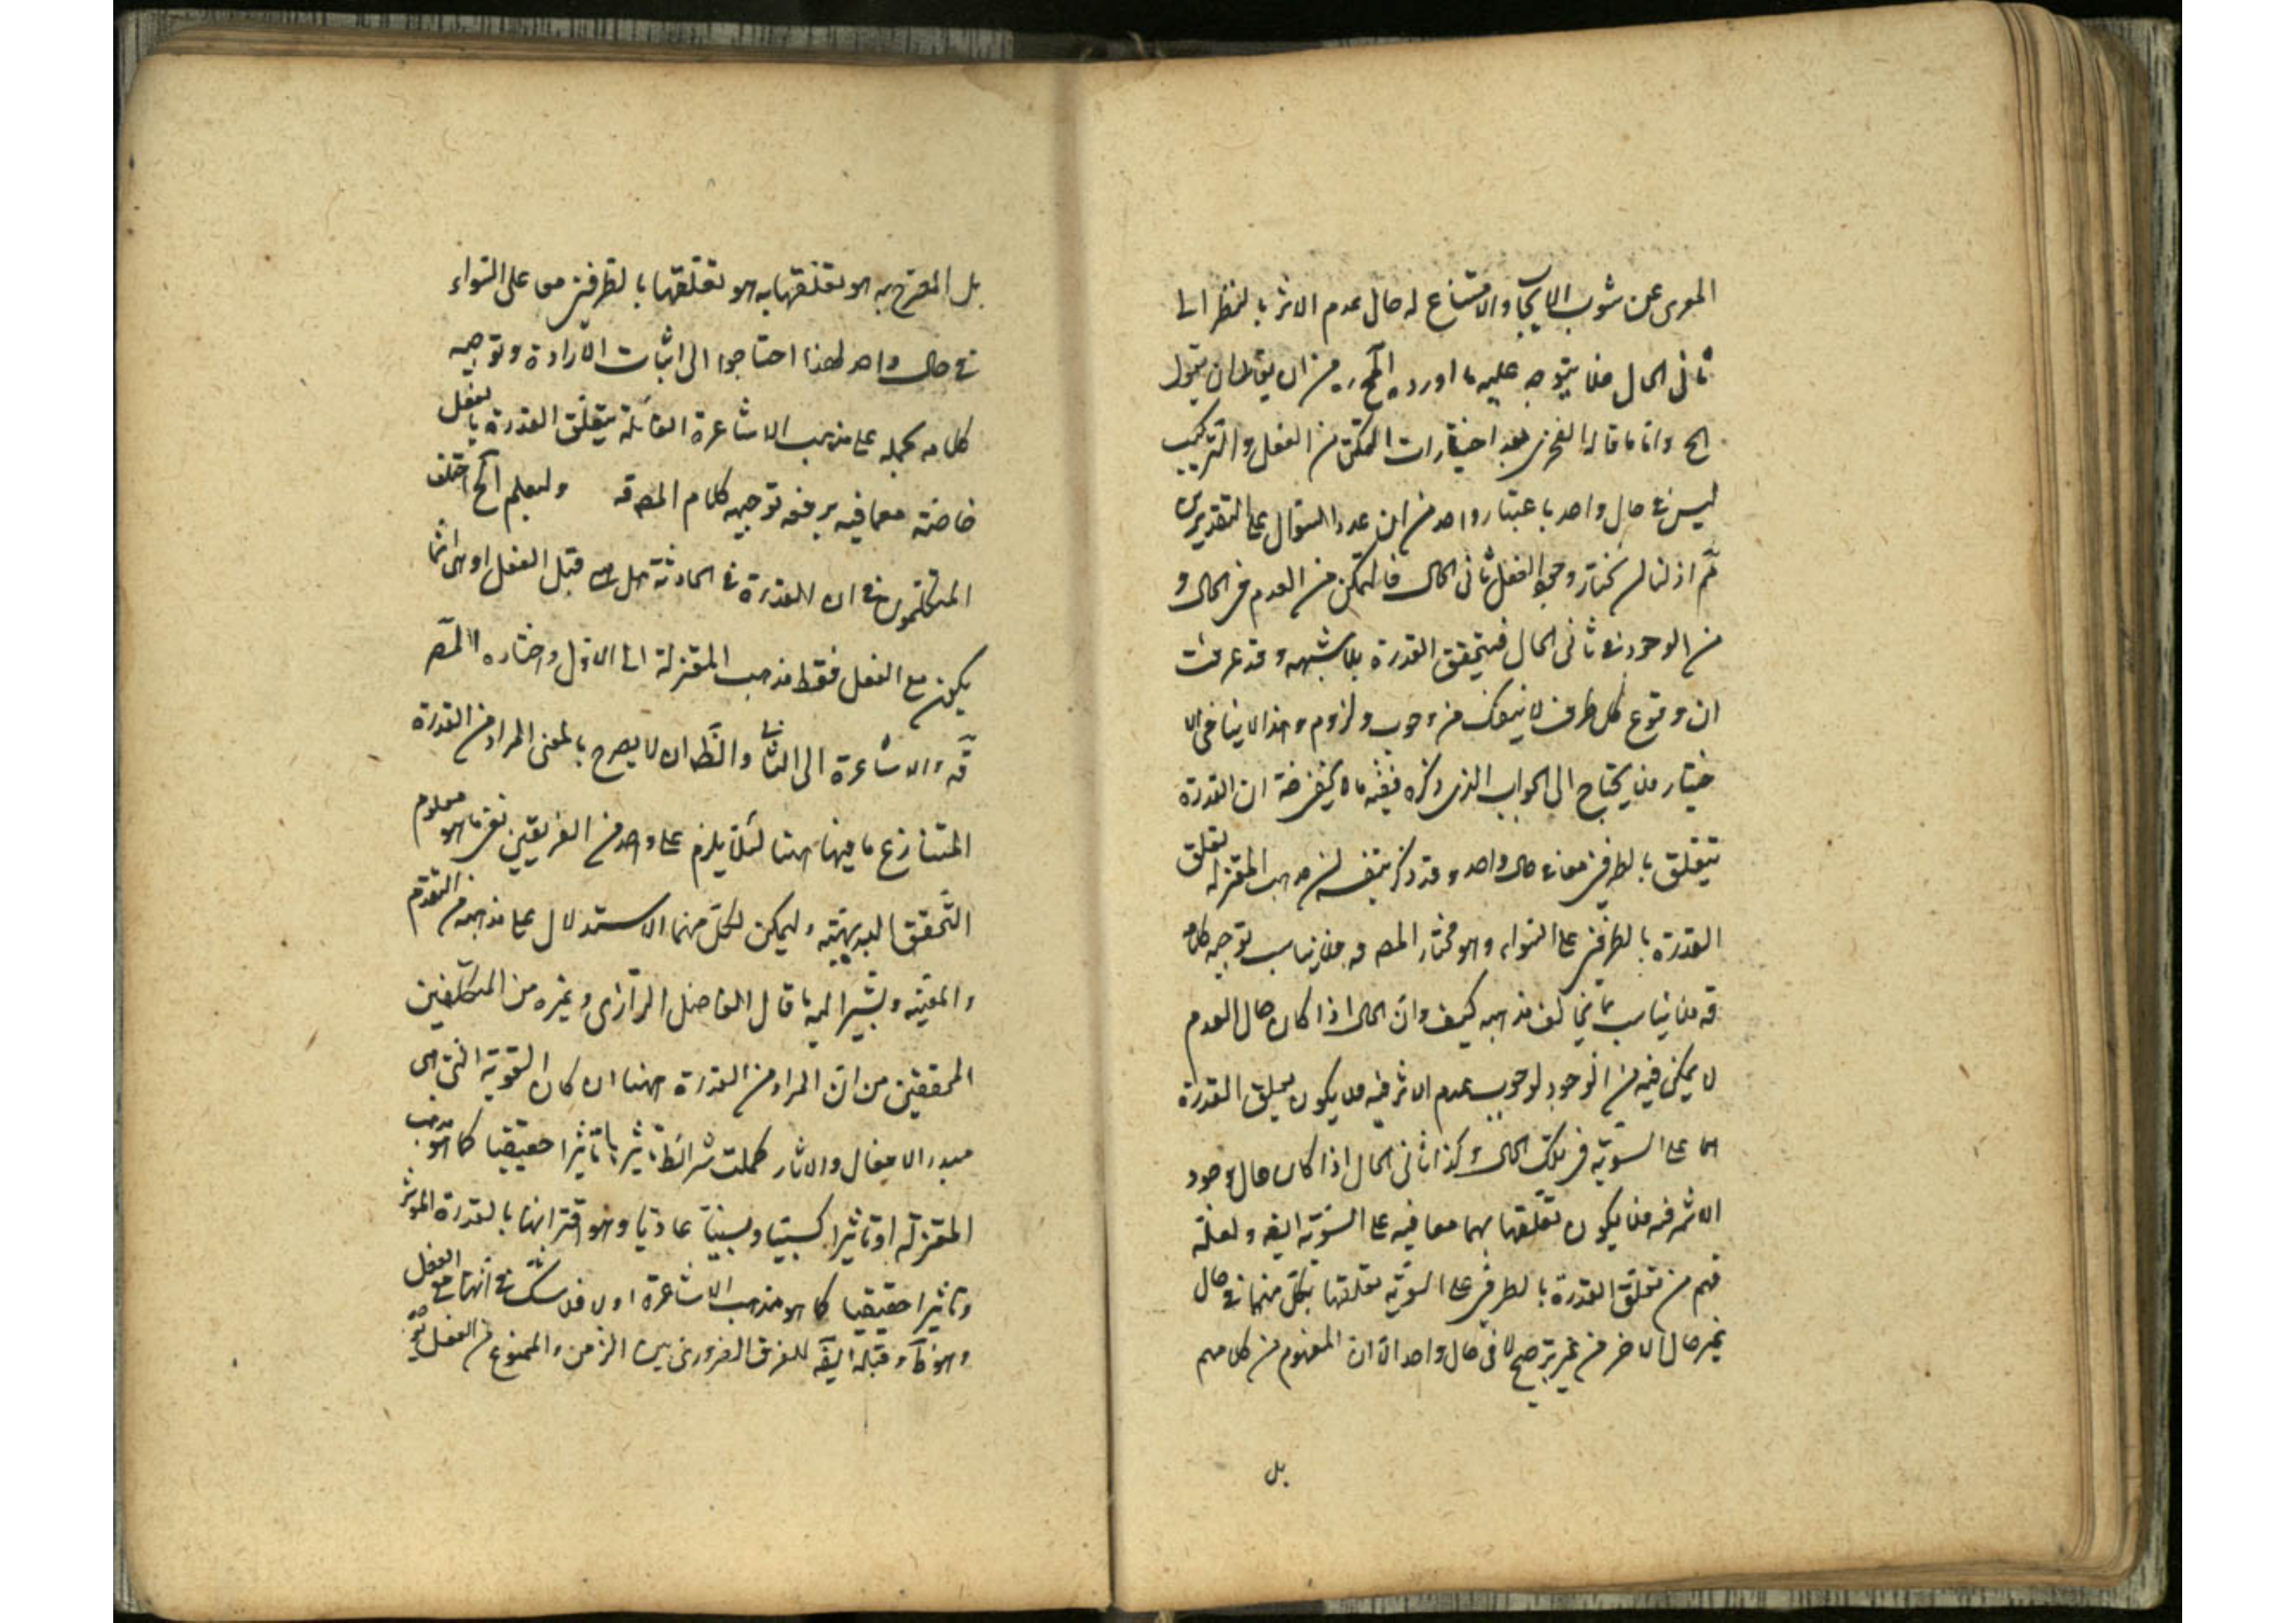 المعرى عن شوب الايجاب والامتناع له حال عدم الاثر بالنظر الى
ثانى الحال فلا يتوجه عليه ما اورده المحـ ره من ان لقائل ان يقول
الخ واما ما قاله الفخرى بعد اختيار ان التمكن من الفعل والترك
ليس فى حال واحد باعتبار واحد من ان عدد السؤال على التقديرين
ثم اذ لنا ان نختار وجوب الفعل ثانى الحال فالتمكن من العدم فى الحال و
من الوجود فى ثانى الحال فيتحقق القدرة بلا شبهه وقد عرفت
ان وقوع كل طرف لا ينفك من وجوب ولزوم وهذا لا ينافى الا
ختيار فلا يحتاج الى الجواب الذى ذكره ففيه ان القدرة
تتعلق بالطرفين معا فى حال واحد وقد ذكر بنفسه ان مذهب المعتزلة تعلق
القدرة بالطرفين على السواء وهو مختار المص قه فلا يناسب توجيه كلامه
قه فلا يناسب بما يخالف مذهبه كيف وان الحال اذا كان حال العدم
لا يمكن فيه من الوجود لوجوب عدم الاثر فيه فلا يكون تعلق القدرة
بهما على السوية فى تلك الحال وكذا ثانى الحال اذا كان حال وجود
الاثر فيه فلا يكون تعلقها بهما معا فيه على السوية ايضا ولعله
فهم من تعلق القدرة بالطرفين على السوية تعلقها بكل منهما فى حال
غير حال الاخر من غير ترجيح لا فى حال واحد الا ان المفهوم من كلامهم
بل
بل المصرح به هو تعلقها به هو تعلقها بالطرفين معا على السواء
فى حال واحد لهذا احتاجوا الى اثبات الارادة وتوجيه
كلامه بحمله على مذهب الاشاعرة القائلة بتعلق القدرة بالفعل
خاصة معما فيه يرفعه توجيه كلام المص قه وليعلم انه اختلف
المتكلمون فى ان القدرة فى الحادثة هل هى قبل الفعل او هى انما
يكون مع الفعل فقط فذهب المعتزلة الى الاول واختاره المص
قه والاشاعرة الى الثانى والظ ان لا يصرح بالمعنى المراد من القدرة
المتنازع ما فيها ههنا لئلا يلزم على واحد من الفريقين نفى ما هو معلوم
التحقق بالبديهية وليمكن لكل منهما الاستدلال على مذهبه من التقدم
والمعية ويشير اليه ما قال الفاضل الرازى وغيره من المتكلمين
المحققين من ان المراد من القدرة ههنا ان كان القوة التى هى
مبدء الافعال والاثار كملت شرائط تأثيرها تأثيرا حقيقيا كما هو مذهب
المعتزلة او تأثيرا كسبيا وسببيا عاديا وهو اقترانها بالقدرة المؤثر
وتأثيرا حقيقيا كما هو مذهب الاشاعرة اولا فلا شك فى انها مع الفعل
وهو وقبله ايضا للفرق الضرورى بين الزمن والممنوع من الفعل